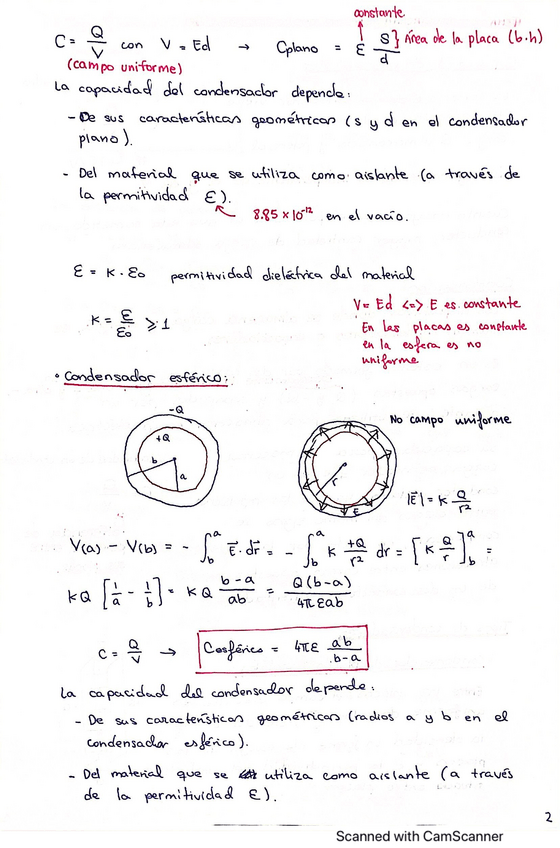 constante
C = Q/V con V = Ed → Cplano = ε S/d } Área de la placa (b.h)
(campo uniforme)
La capacidad del condensador depende:
- De sus características geométricas (s y d en el condensador
plano).
- Del material que se utiliza como aislante (a través de
la permitividad ε).
8.85 × 10⁻¹² en el vacío.
ε = K · ε₀ permitividad dieléctrica del material
K = ε/ε₀ ≥ 1
V = Ed <=> E es constante
En las placas es constante
en la esfera es no
uniforme
• Condensador esférico:
-Q
+Q
b
a
No campo uniforme
r
E
|E⃗| = K Q/r²
V(a) - V(b) = - ∫_b^a E⃗ · dr⃗ = - ∫_b^a K +Q/r² dr = [K Q/r]_b^a =
KQ [1/a - 1/b] = KQ b-a/ab = Q(b-a)/4πεab
C = Q/V → Cesférico = 4πε ab/b-a
La capacidad del condensador depende:
- De sus características geométricas (radios a y b en el
condensador esférico).
- Del material que se utiliza como aislante (a través
de la permitividad ε).
2
Scanned with CamScanner